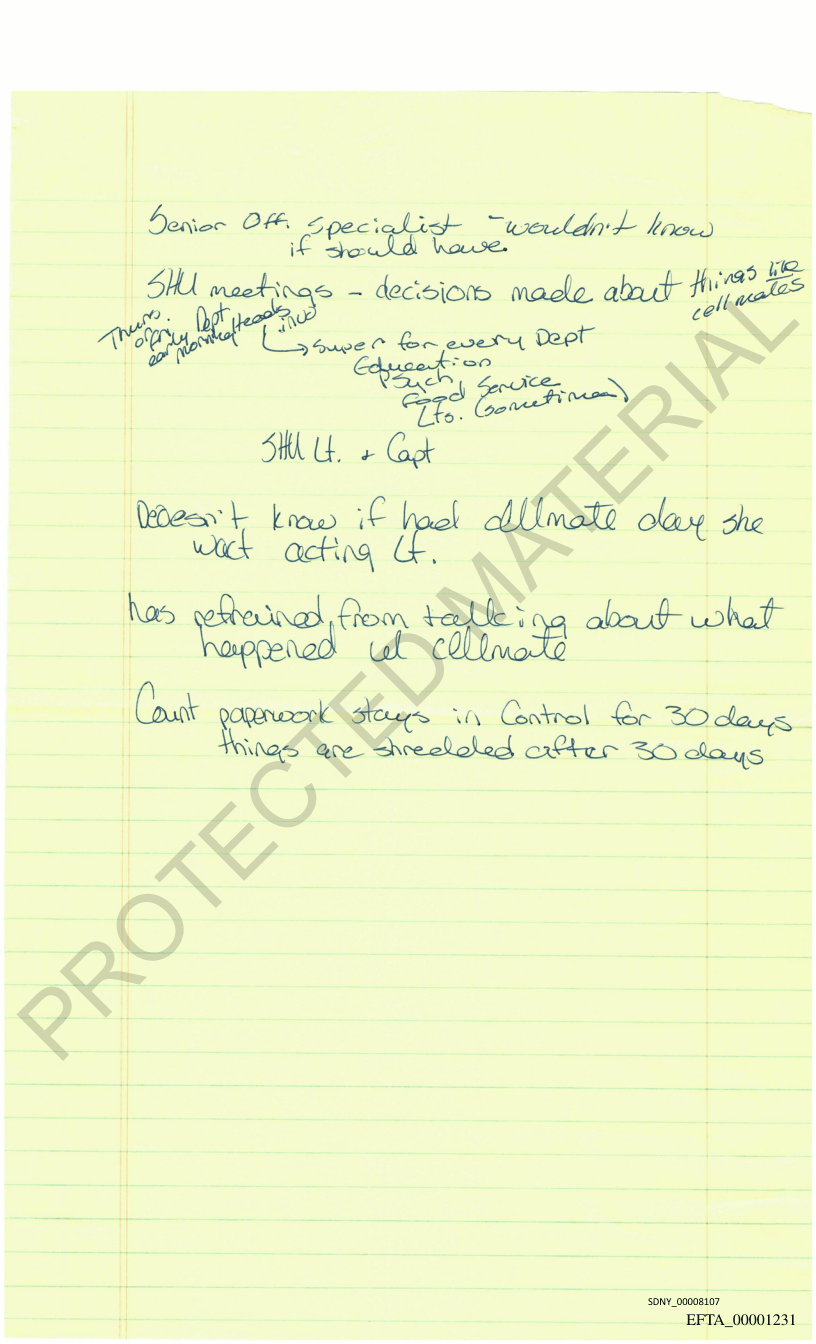 Senior Off. Specialist - wouldn't know
if should have.
SHU meetings - decisions made about things like
cellmates
Thurs.
early Dept Heads
morning
↳ Super for every Dept
Education
Psych
Food Service
Lts. (sometimes)
SHU Lt. + Capt
Doesn't know if had cellmate day she
was acting Lt.
has refrained from talking about what
happened w/ cellmate
Count paperwork stays in Control for 30 days
things are shredded after 30 days
PROTECTED MATERIAL
SDNY_00008107
EFTA_00001231